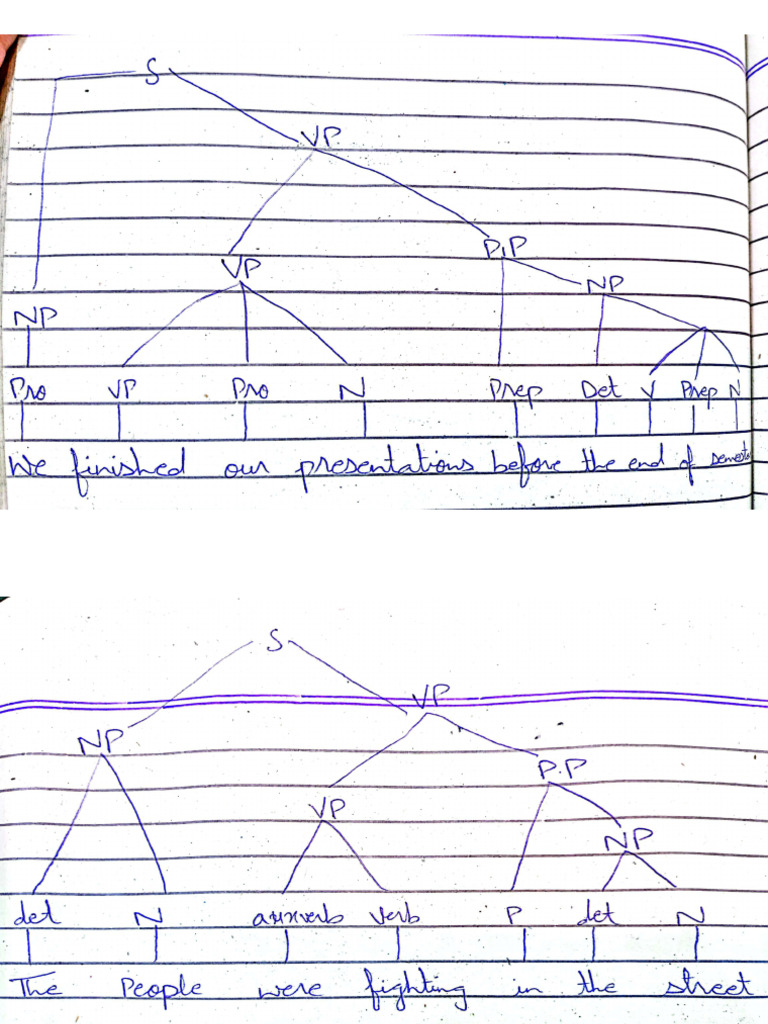 S
VP
P.P
VP
NP
NP
Pro VP Pro N Prep Det V Prep N
We finished our presentations before the end of semester
S
VP
NP
P.P
VP
NP
det N auxverb verb P det N
The People were fighting in the street